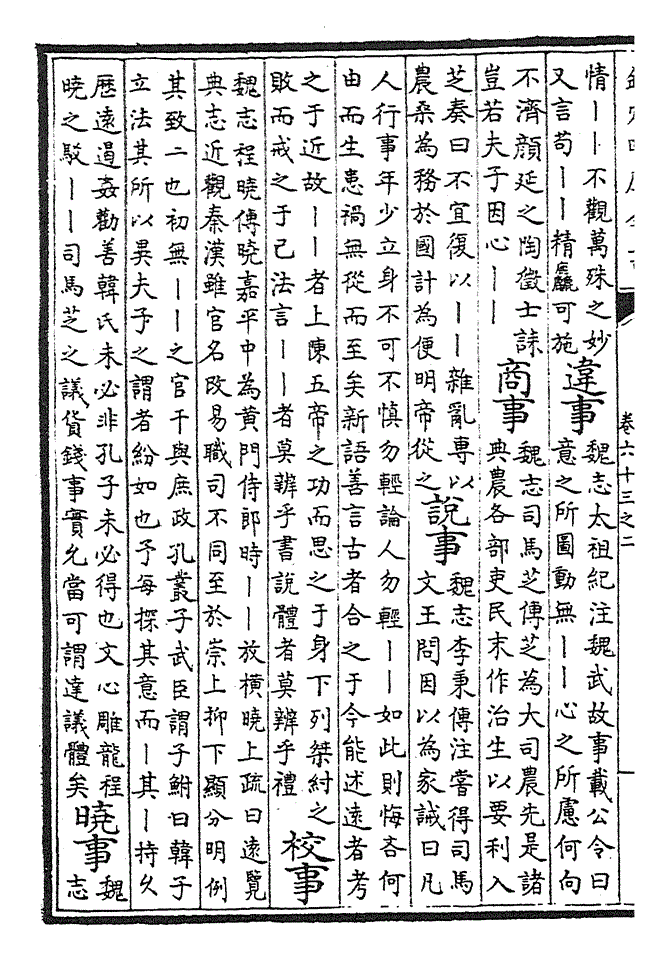 卷六十三之二
情丨丨不觀萬殊之妙
又言苟丨丨精麤可施
違事
魏志太祖紀注魏武故事載公令曰
意之所圖動無丨丨心之所慮何向
不濟顔延之陶徵士誄
豈若夫子因心丨丨
商事
魏志司馬芝傳芝為大司農先是諸
典農各部吏民末作治生以要利入
芝奏曰不宜復以丨丨雜亂專以
農桑為務於國計為便明帝從之
說事
魏志李秉傳注嘗得司馬
文王問因以為家誡曰凡
人行事年少立身不可不慎勿輕論人勿輕丨丨如此則悔吝何
由而生患禍無從而至矣新語善言古者合之于今能述遠者考
之于近故丨丨者上陳五帝之功而思之于身下列桀紂之
敗而戒之于己法言丨丨者莫辨乎書說體者莫辨乎禮
校事
魏志程曉傳曉嘉平中為黄門侍郎時丨丨放横曉上疏曰遠覽
典志近觀秦漢雖官名改易職司不同至於崇上抑下顯分明例
其致二也初無丨丨之官干與庶政孔叢子武臣謂子鮒曰韓子
立法其所以異夫子之謂者紛如也予每探其意而丨其丨持久
歷遠遏姦勸善韓氏未必非孔子未必得也文心雕龍程
曉之駁丨丨司馬芝之議貨錢事實允當可謂達議體矣
曉事
魏
志